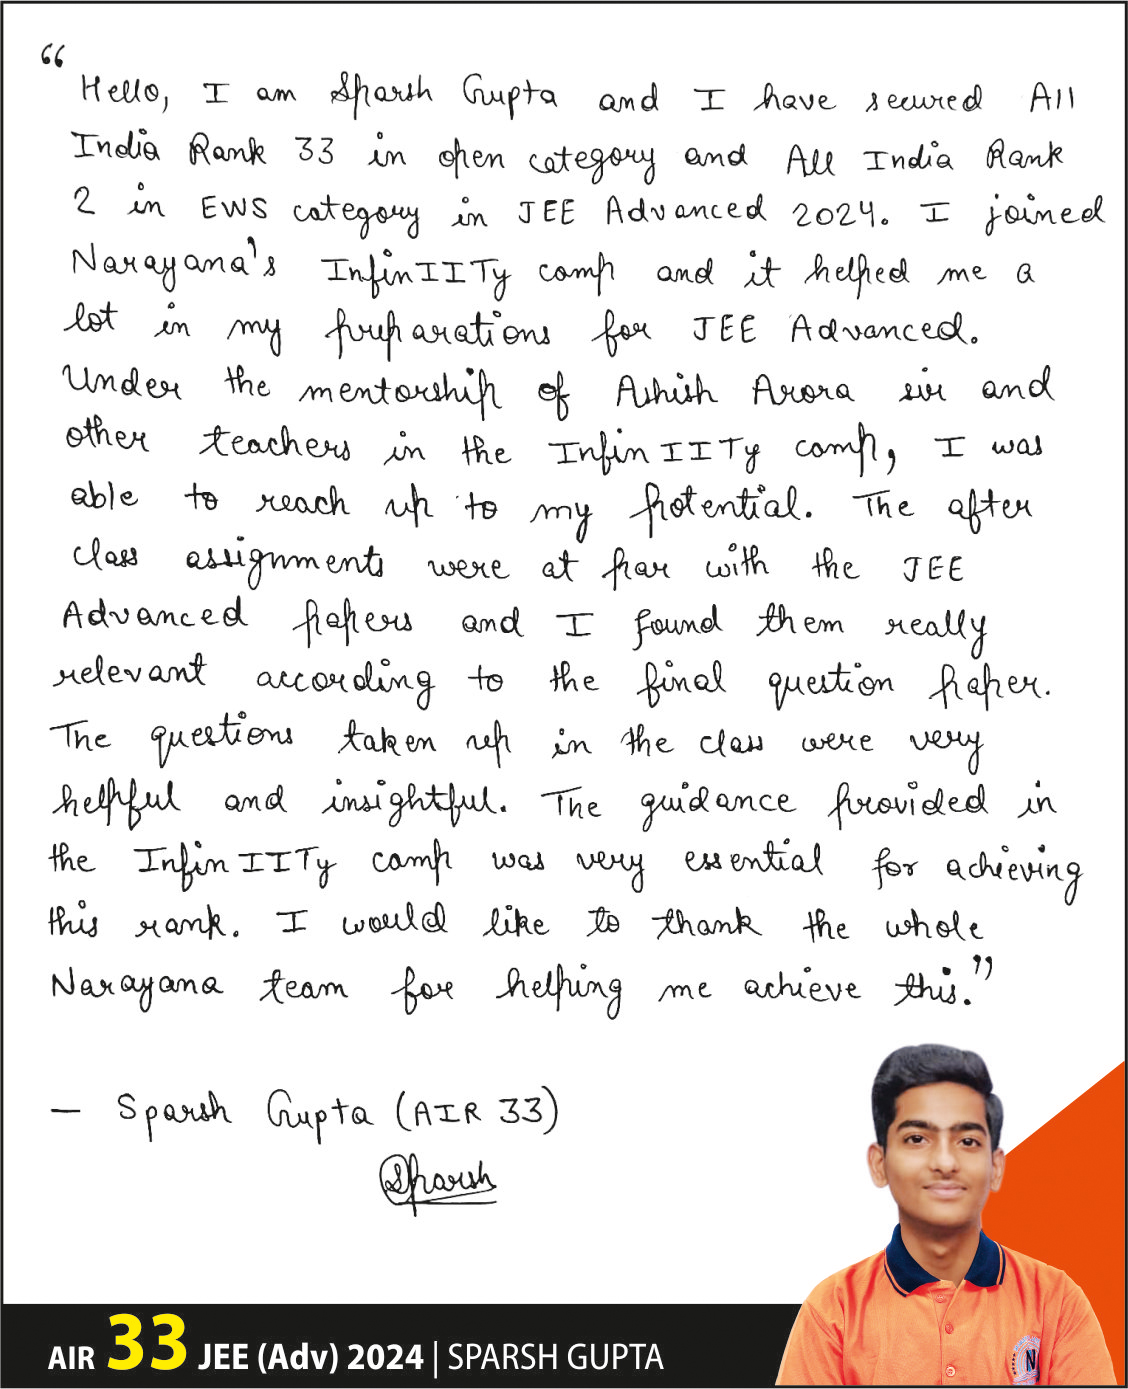 “
Hello, I am Sparsh Gupta and I have secured All
India Rank 33 in open category and All India Rank
2 in EWS category in JEE Advanced 2024. I joined
Narayana's InfinIITy camp and it helped me a
lot in my preparations for JEE Advanced.
Under the mentorship of Ashish Arora sir and
other teachers in the InfinIITy camp, I was
able to reach up to my potential. The after
class assignments were at par with the JEE
Advanced papers and I found them really
relevant according to the final question paper.
The questions taken up in the class were very
helpful and insightful. The guidance provided in
the InfinIITy camp was very essential for achieving
this rank. I would like to thank the whole
Narayana team for helping me achieve this.”
– Sparsh Gupta (AIR 33)
Sparsh
AIR 33 JEE (Adv) 2024 | SPARSH GUPTA
N